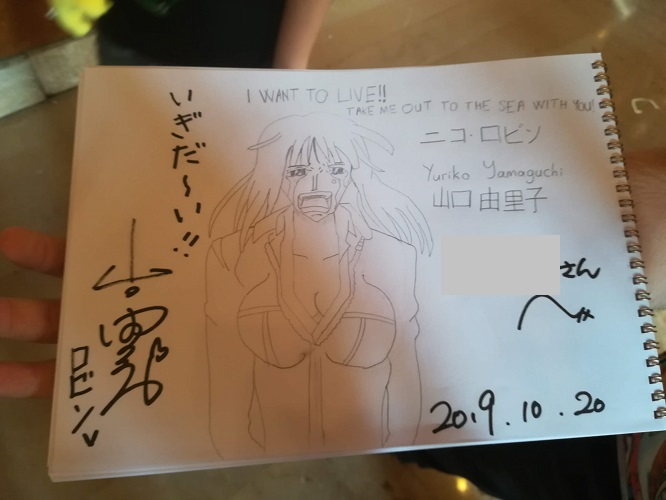 I WANT TO LIVE!!
TAKE ME OUT TO THE SEA WITH YOU!
ニコ・ロビン
Yuriko Yamaguchi
山口 由里子
いぎだ〜い!!
さん
へ
ロビン
2019.10.20